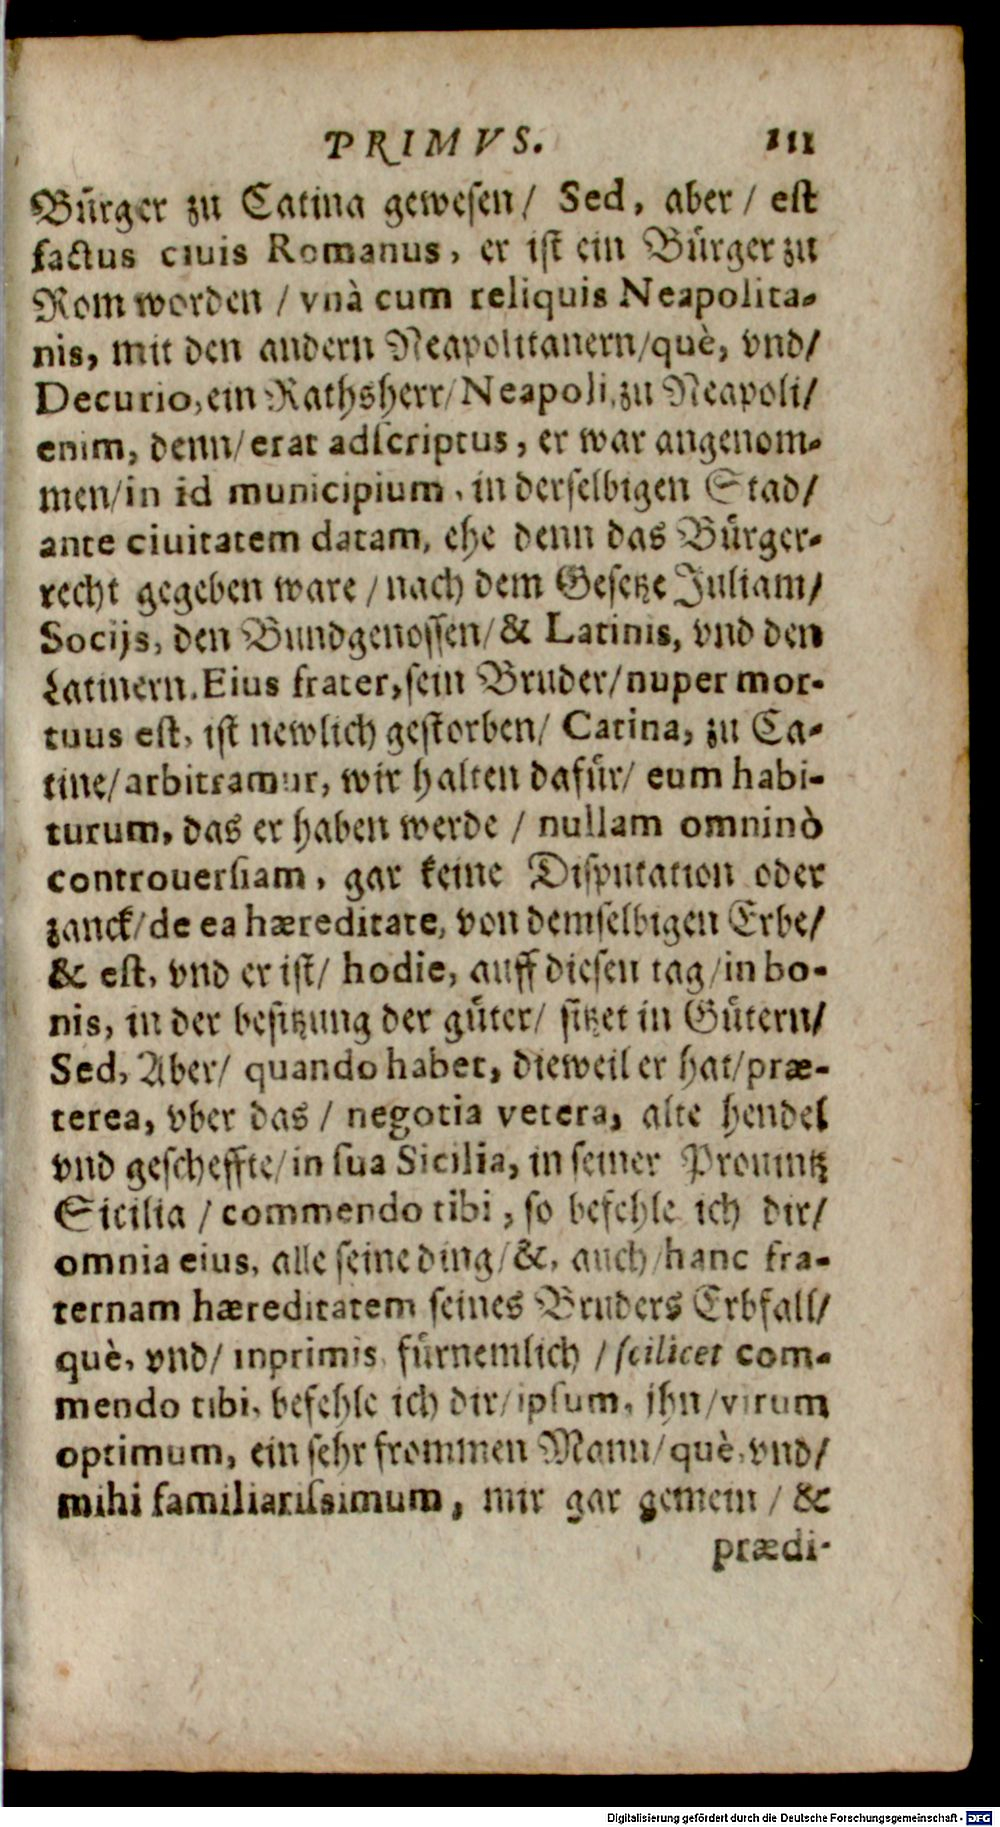 PRIMVS. 111
Bürger zu Catina gewesen / Sed, aber / est
factus ciuis Romanus, er ist ein Bürger zu
Rom worden / vnà cum reliquis Neapolita-
nis, mit den andern Neapolitanern/què, vnd/
Decurio, ein Rathsherr/Neapoli, zu Neapoli/
enim, denn/erat adscriptus, er war angenom-
men/in id municipium, in derselbigen Stad/
ante ciuitatem datam, ehe denn das Bürger-
recht gegeben ware / nach dem Gesetze Juliam/
Socijs, den Bundgenossen/& Latinis, vnd den
Latinern. Eius frater, sein Bruder/nuper mor-
tuus est, ist newlich gestorben/ Catina, zu Ca-
tine/arbitramur, wir halten dafür/ eum habi-
turum, das er haben werde / nullam omninò
controuersiam, gar keine Disputation oder
zanck/de ea hæreditate, von demselbigen Erbe/
& est, vnd er ist/ hodie, auff diesen tag/in bo-
nis, in der besitzung der güter/ sitzet in Gütern/
Sed, Aber/ quando habet, dieweil er hat/præ-
terea, vber das / negotia vetera, alte hendel
vnd gescheffte/in sua Sicilia, in seiner Prouintz
Sicilia / commendo tibi, so befehle ich dir/
omnia eius, alle seine ding/&, auch/hanc fra-
ternam hæreditatem seines Bruders Erbfall/
què, vnd/ inprimis fürnemlich / scilicet com-
mendo tibi, befehle ich dir/ipsum, ihn/virum
optimum, ein sehr frommen Mann/què, vnd/
mihi familiarissimum, mir gar gemein / &
prædi-
Digitalisierung gefördert durch die Deutsche Forschungsgemeinschaft - DFG